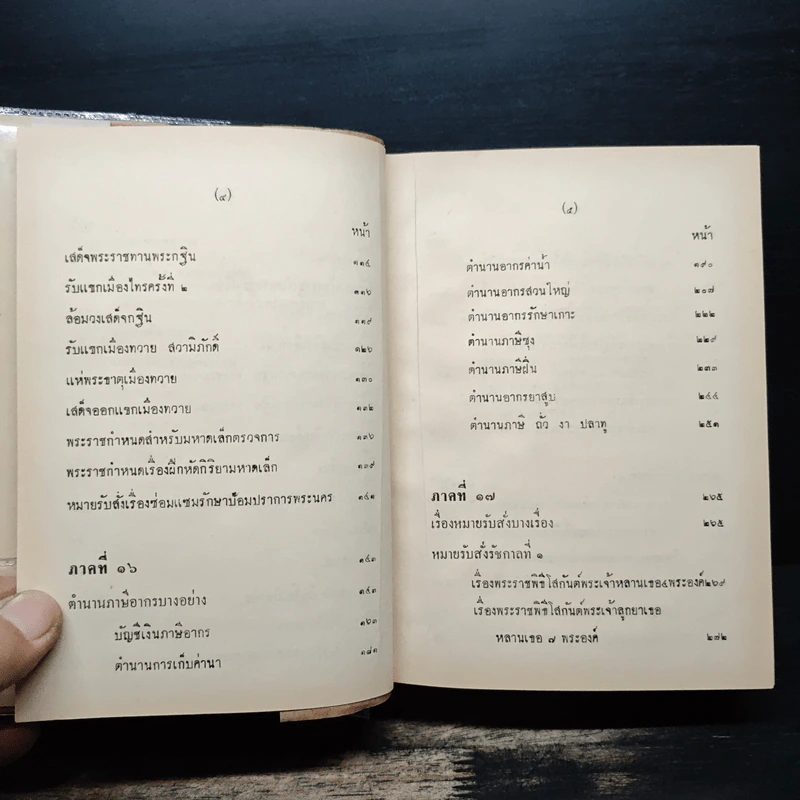 (๔)
หน้า
เสด็จพระราชทานพระกฐิน ๑๑๔
รับแขกเมืองไทรครั้งที่ ๒ ๑๑๖
ล้อมวงเสด็จกฐิน ๑๑๙
รับแขกเมืองทวาย สวามิภักดิ์ ๑๒๖
แห่พระธาตุเมืองทวาย ๑๓๐
เสด็จออกแขกเมืองทวาย ๑๓๒
พระราชกำหนดสำหรับมหาดเล็กตรวจการ ๑๓๖
พระราชกำหนดเรื่องฝึกหัดกิริยามหาดเล็ก ๑๓๙
หมายรับสั่งเรื่องซ่อมแซมรักษาป้อมปราการพระนคร ๑๔๑
ภาคที่ ๑๖ ๑๔๓
ตำนานภาษีอากรบางอย่าง ๑๔๓
บัญชีเงินภาษีอากร ๑๖๓
ตำนานการเก็บค่านา ๑๘๑
(๕)
หน้า
ตำนานอากรค่าน้ำ ๑๙๐
ตำนานอากรสวนใหญ่ ๒๐๗
ตำนานอากรรักษาเกาะ ๒๒๒
ตำนานภาษีซุง ๒๒๙
ตำนานภาษีฝิ่น ๒๓๓
ตำนานอากรยาสูบ ๒๔๔
ตำนานภาษี ถั่ว งา ปลาทู ๒๕๑
ภาคที่ ๑๗ ๒๖๕
เรื่องหมายรับสั่งบางเรื่อง ๒๖๕
หมายรับสั่งรัชกาลที่ ๑
เรื่องพระราชพิธีโสกันต์พระเจ้าหลานเธอ๔พระองค์๒๖๙
เรื่องพระราชพิธีโสกันต์พระเจ้าลูกยาเธอ
หลานเธอ ๗ พระองค์ ๒๗๒